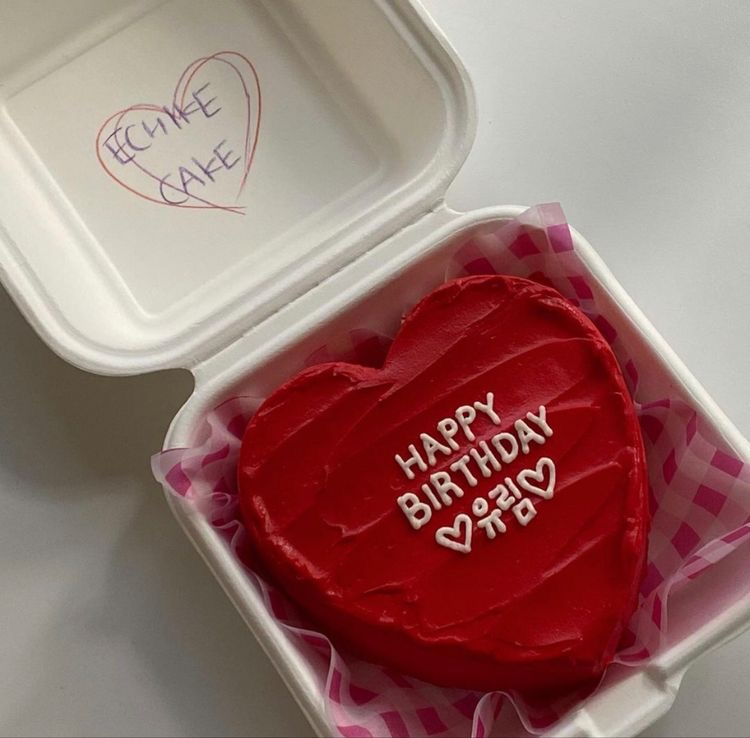 ECHKE
CAKE
HAPPY
BIRTHDAY
♡유림♡